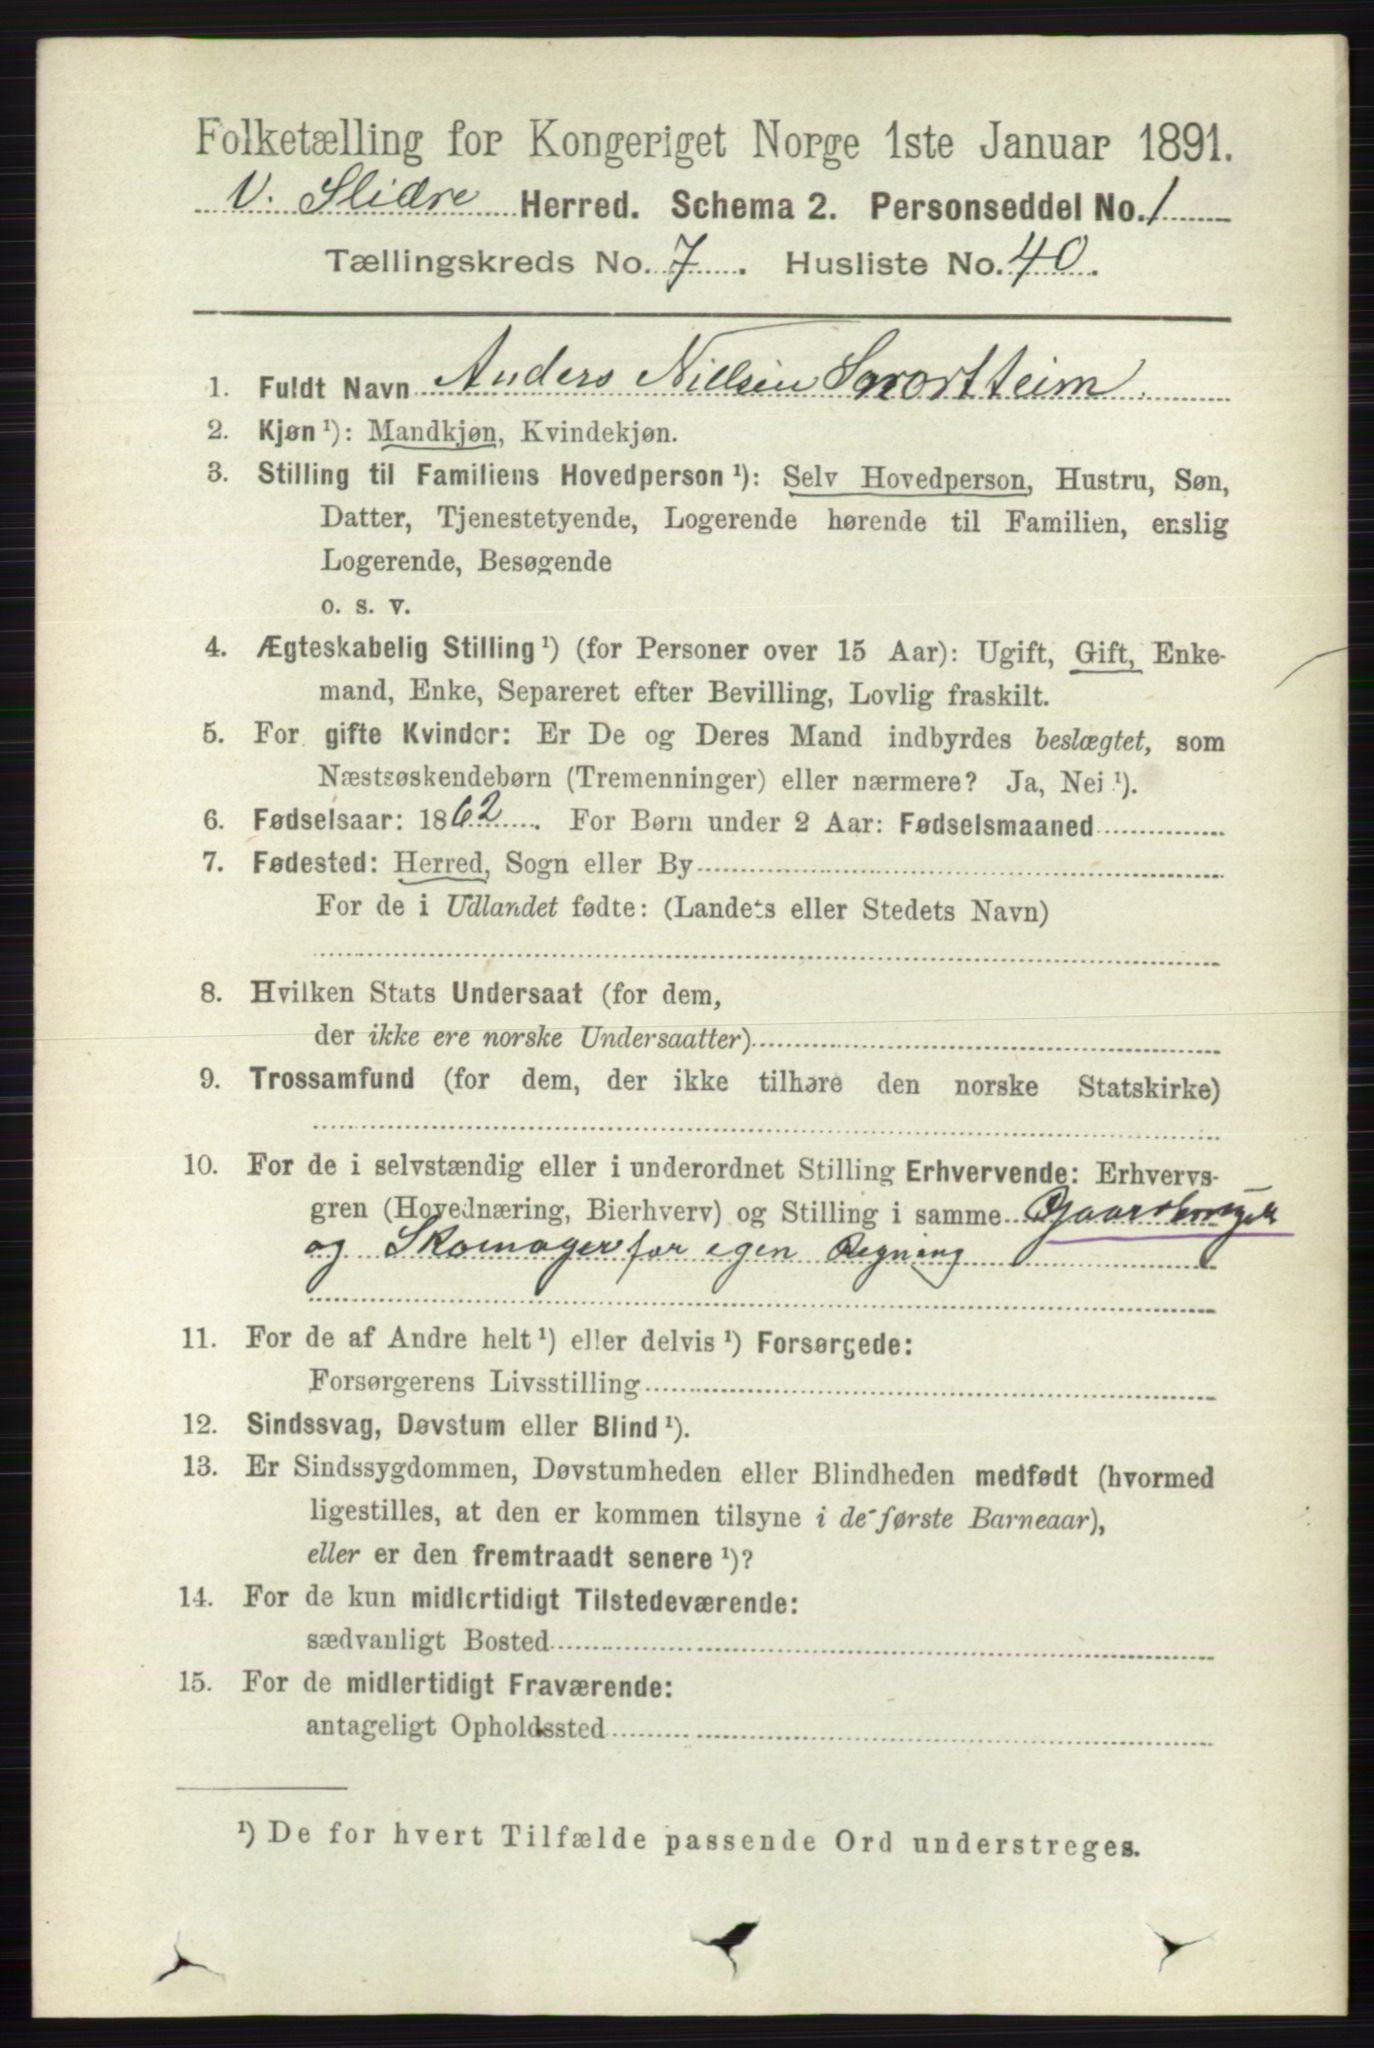 Folketælling for Kongeriget Norge 1ste Januar 1891.
V. Slidre Herred. Schema 2. Personseddel No. 1
Tællingskreds No. 7. Husliste No. 40.
1. Fuldt Navn Anders Nielsen
2. Kjøn ¹): Mandkjøn, Kvindekjøn.
3. Stilling til Familiens Hovedperson ¹): Selv Hovedperson, Hustru, Søn,
Datter, Tjenestetyende, Logerende hørende til Familien, enslig
Logerende, Besøgende
o. s. v.
4. Ægteskabelig Stilling ¹) (for Personer over 15 Aar): Ugift, Gift, Enke-
mand, Enke, Separeret efter Bevilling, Lovlig fraskilt.
5. For gifte Kvinder: Er De og Deres Mand indbyrdes beslægtet, som
Næstsøskendebørn (Tremenninger) eller nærmere? Ja, Nei ¹).
6. Fødselsaar: 1862. For Børn under 2 Aar: Fødselsmaaned
7. Fødested: Herred, Sogn eller By
For de i Udlandet fødte: (Landets eller Stedets Navn)
8. Hvilken Stats Undersaat (for dem,
der ikke ere norske Undersaatter)
9. Trossamfund (for dem, der ikke tilhøre den norske Statskirke)
10. For de i selvstændig eller i underordnet Stilling Erhvervende: Erhvervs-
gren (Hovednæring, Bierhverv) og Stilling i samme
og Skomager for egen Regning
11. For de af Andre helt ¹) eller delvis ¹) Forsørgede:
Forsørgerens Livsstilling
12. Sindssvag, Døvstum eller Blind ¹).
13. Er Sindssygdommen, Døvstumheden eller Blindheden medfødt (hvormed
ligestilles, at den er kommen tilsyne i de første Barneaar),
eller er den fremtraadt senere ¹)?
14. For de kun midlertidigt Tilstedeværende:
sædvanligt Bosted
15. For de midlertidigt Fraværende:
antageligt Opholdssted
¹) De for hvert Tilfælde passende Ord understreges.